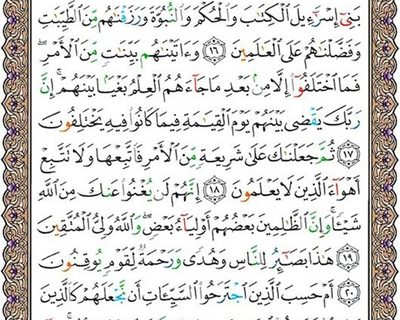 بَنِىٓ إِسْرَٰٓءِيلَ ٱلْكِتَٰبَ وَٱلْحُكْمَ وَٱلنُّبُوَّةَ وَرَزَقْنَٰهُم مِّنَ ٱلطَّيِّبَٰتِ
وَفَضَّلْنَٰهُمْ عَلَى ٱلْعَٰلَمِينَ ١٦ وَءَاتَيْنَٰهُم بَيِّنَٰتٍ مِّنَ ٱلْأَمْرِ ۖ
فَمَا ٱخْتَلَفُوٓا۟ إِلَّا مِنۢ بَعْدِ مَا جَآءَهُمُ ٱلْعِلْمُ بَغْيًۢا بَيْنَهُمْ ۚ إِنَّ
رَبَّكَ يَقْضِى بَيْنَهُمْ يَوْمَ ٱلْقِيَٰمَةِ فِيمَا كَانُوا۟ فِيهِ يَخْتَلِفُونَ
١٧ ثُمَّ جَعَلْنَٰكَ عَلَىٰ شَرِيعَةٍ مِّنَ ٱلْأَمْرِ فَٱتَّبِعْهَا وَلَا تَتَّبِعْ
أَهْوَآءَ ٱلَّذِينَ لَا يَعْلَمُونَ ١٨ إِنَّهُمْ لَن يُغْنُوا۟ عَنكَ مِنَ ٱللَّهِ
شَيْـًٔا ۚ وَإِنَّ ٱلظَّٰلِمِينَ بَعْضُهُمْ أَوْلِيَآءُ بَعْضٍ ۖ وَٱللَّهُ وَلِىُّ ٱلْمُتَّقِينَ
١٩ هَٰذَا بَصَٰٓئِرُ لِلنَّاسِ وَهُدًى وَرَحْمَةٌ لِّقَوْمٍ يُوقِنُونَ
٢٠ أَمْ حَسِبَ ٱلَّذِينَ ٱجْتَرَحُوا۟ ٱلسَّيِّـَٔاتِ أَن نَّجْعَلَهُمْ كَٱلَّذِينَ